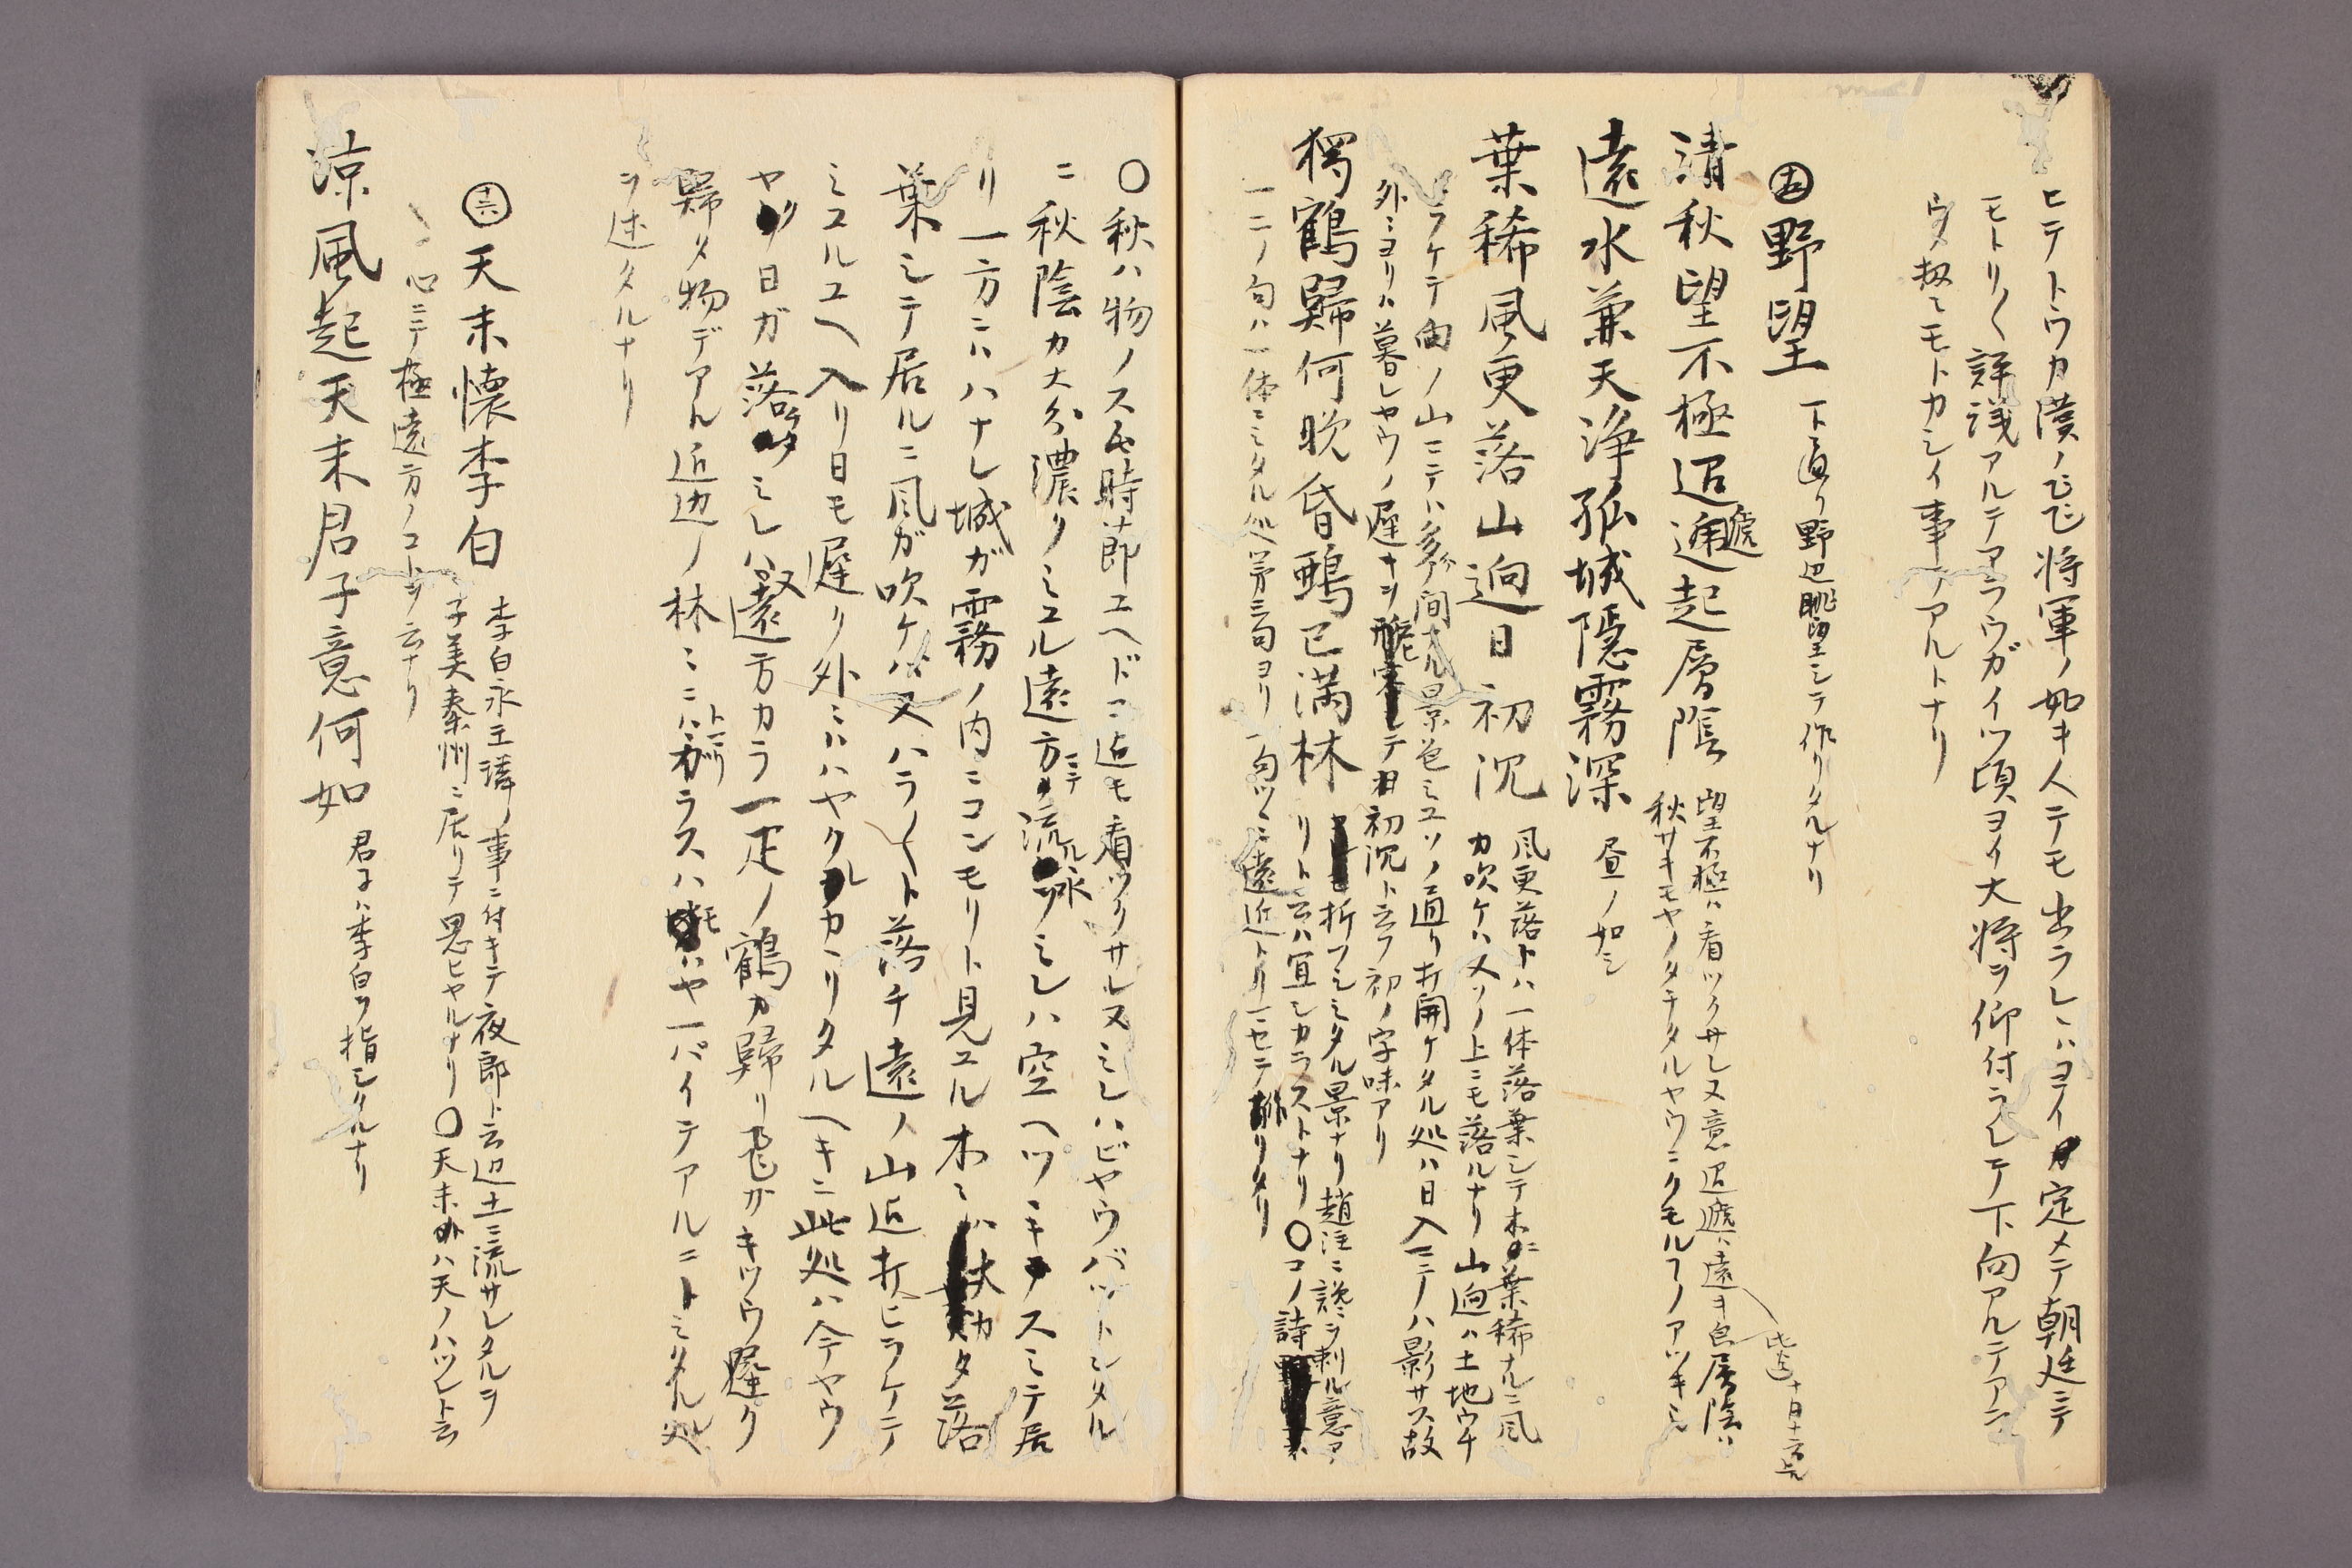 ヒテトウカ漢ノ飛将軍ノ如キ人テモ出ラレハヨイカ定メテ朝廷ニテ
モトリ〱詳議アルテアラウガイツ頃ヨイ大将ヲ仰付ラレテ下向アルテアラ
ウヌ扨モモトカシイ事テアルトナリ
野望 下通リ野辺眺望シテ作リタルナリ
清秋望不極迢遞起層陰 望不極ハ看ツクサレヌ意迢遞ハ遠キ皃層陰ハ
秋サキモヤノタチタルヤウニクモルフノアツキ
遠水兼天浄孤城隠霧深 昼ノ如シ
葉稀風更落山迥日初沈 風更落トハ一体落葉シテ木ニ葉稀ナルニ風
カ吹ケハ又ソノ上ニモ落ルナリ山迥ハ土地ウチ
ラケテ向ノ山ニテハ多ク間ナル景色ミユソノ通リ打開ケタル処ハ日入ニテハ影サス故
外ミヨリハ暮レヤウノ遅キヲ 初沈ト云フ初ノ字味アリ
獨鶴歸何晩昏鴉已満林 折フシミタル景ナリ趙注ニ讒ヲ刺ル意ア
リト云ハ宜シカラストナリ〇コノ詩
一二ノ句ハ一体ニミタル処第三句ヨリ一句ツヽニ遠近トリ合セテ
〇秋ハ物ノスム時節ユヘドコ迄モ看ツクサレヌミレハビヤウバツトシタル
ニ秋陰カ大分濃クミユル遠方ニテ流ルヽ水ヲミレハ空ヘツヽキスミテ居
リ一方ニハハナレ城ガ霧ノ内ニコンモリト見エル木ミハ タ落
葉シテ居ルニ風ガ吹ケハ又ハラ〱ト落チ遠ノ山近打ヒラケテ
ミユルユヘ入リ日モ遅ク外ミハハヤクルカヽリタルヘキニ此処ハ今ヤウ
ヤウ日ガ落 ミレハ又遠方カラ一疋ノ鶴カ歸リ飛ガキツウ遅ク
歸タ物デアル近辺ノ林ミニハトマリガラスハ モハヤ一パイテアルニトミタル処
ヲ述タルナリ
十六 天末懐李白 李白永王璘ノ事ニ付キテ夜郎ト云辺土ニ流サレタルヲ
子美秦州ニ居リテ思ヒヤルナリ〇天末ハ天ノハツレト云
心ニテ極遠方ノコトヲ云ナリ
涼風起天末君子意何如 君子ハ李白ヲ指シタルナリ